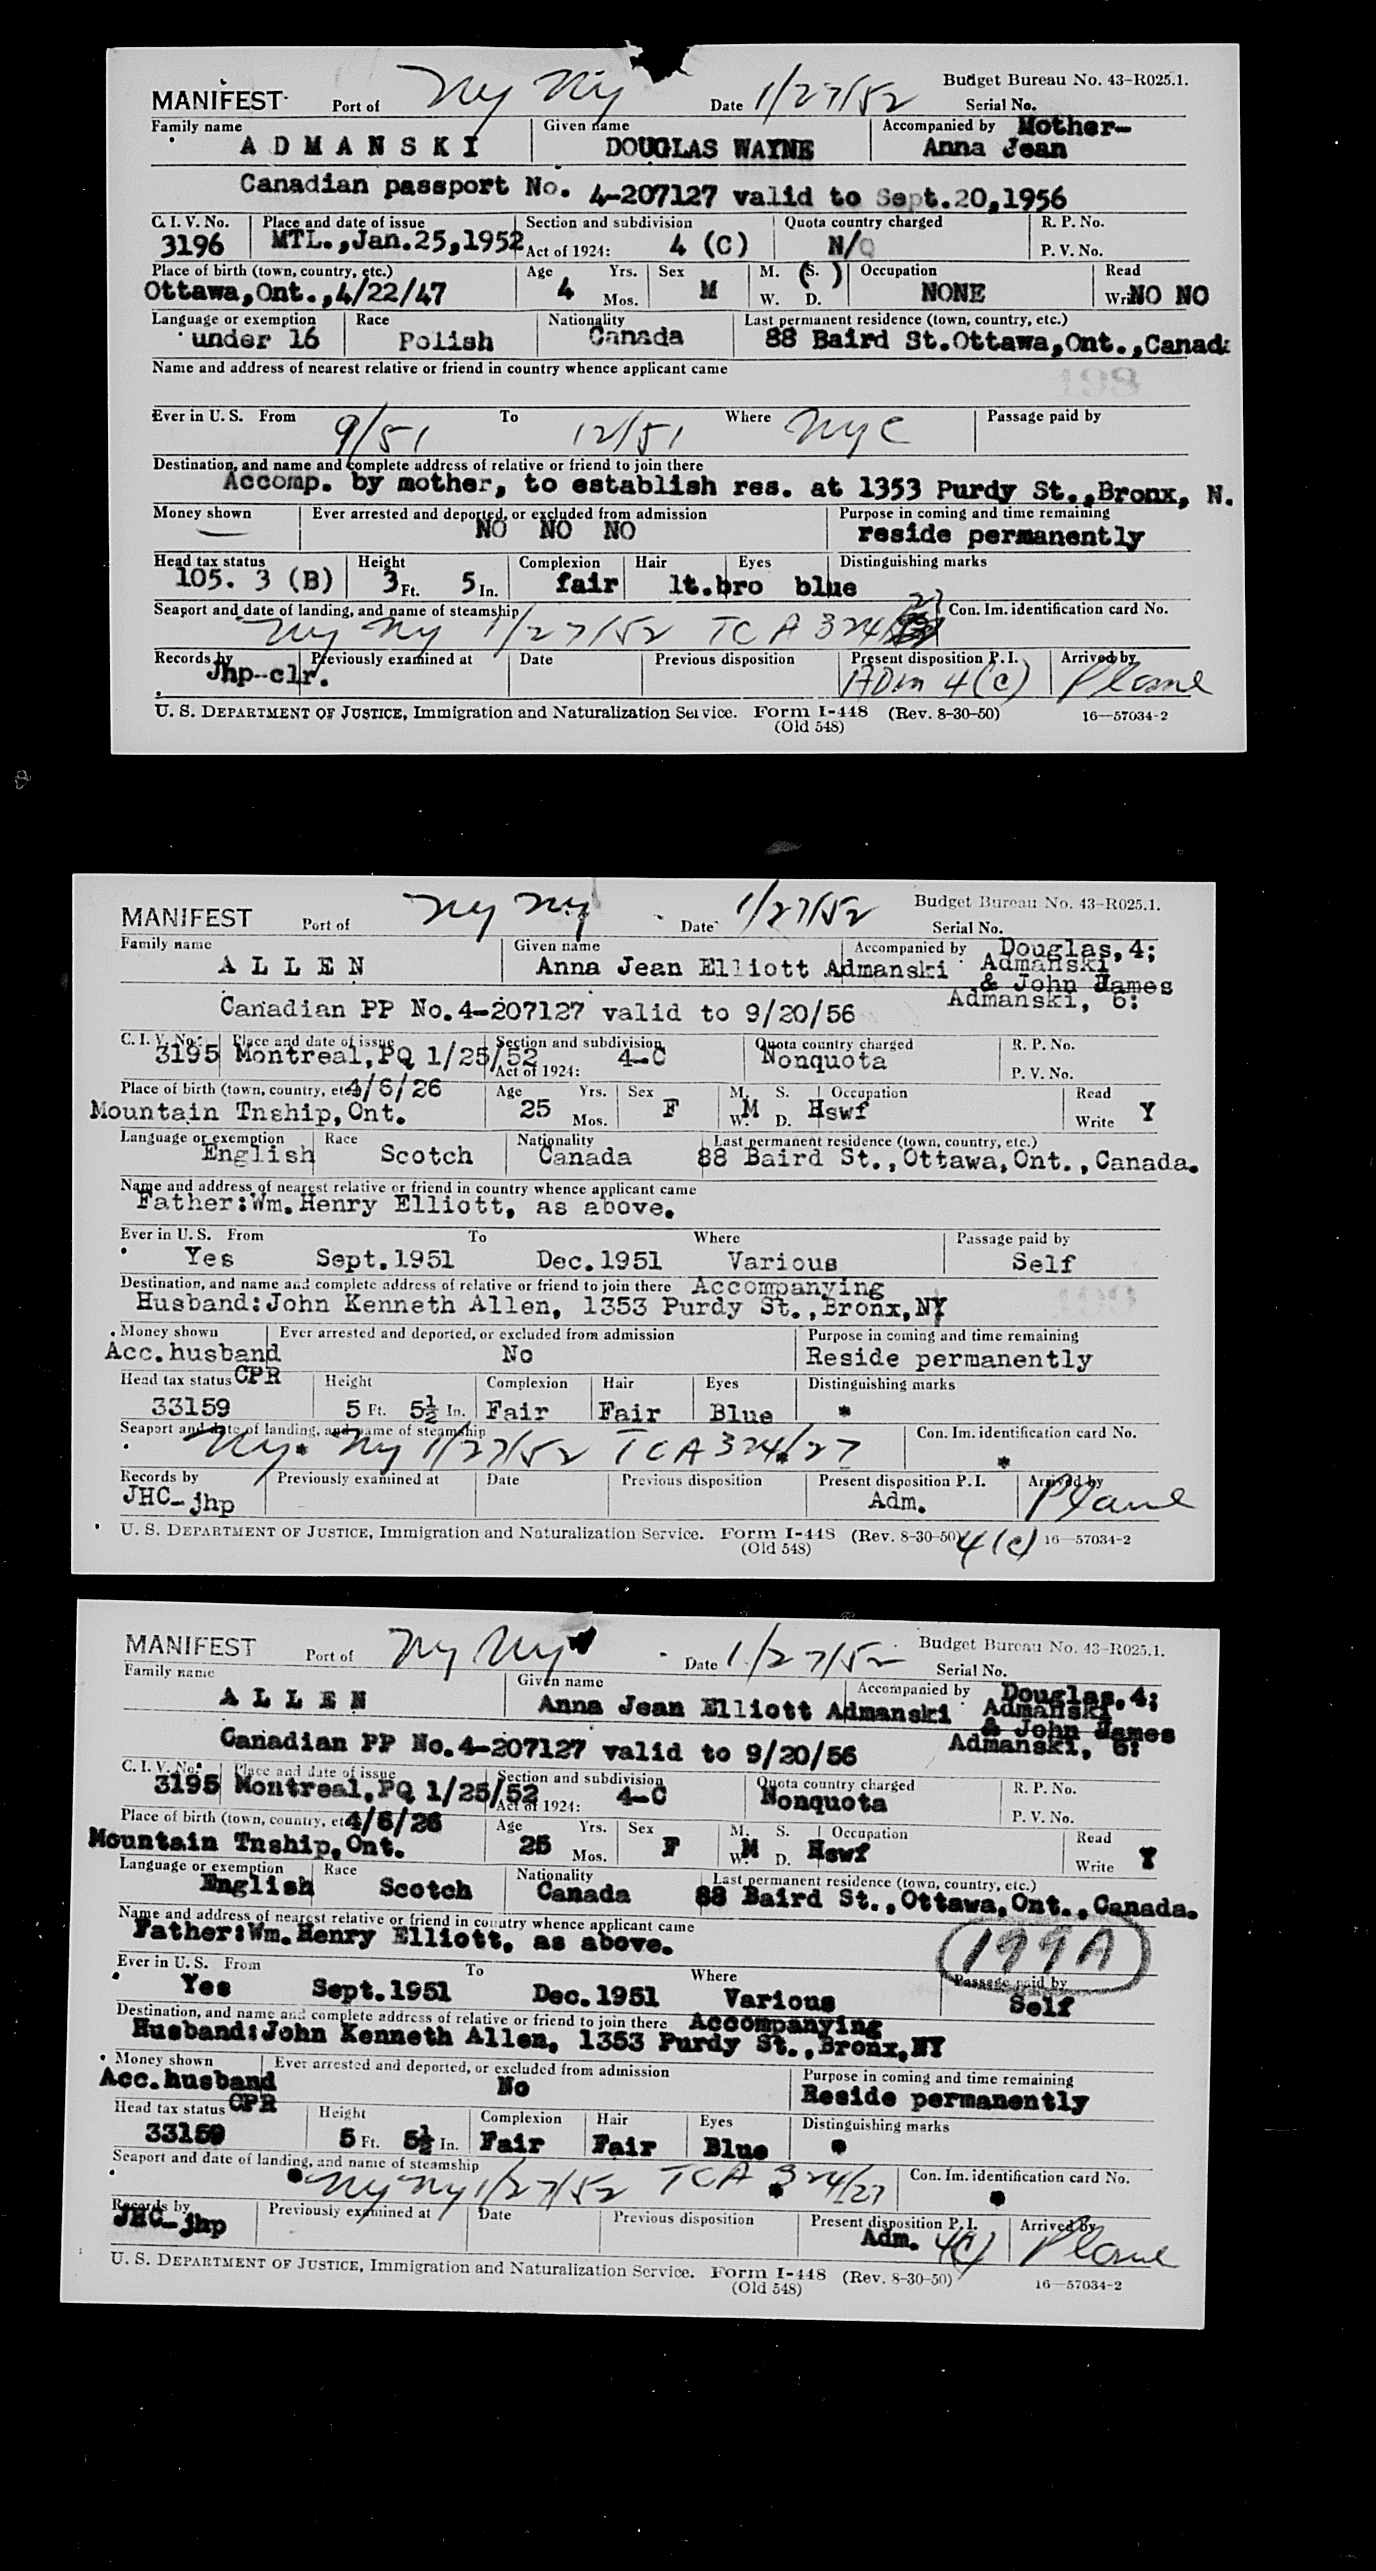 Budget Bureau No. 43-R025.1.
MANIFEST Port of Ny Ny Date 1/27/52 Serial No.
Family name Given name Accompanied by Mother-
ADMANSKI DOUGLAS WAYNE Anna Jean
Canadian passport No. 4-207127 valid to Sept.20,1956
C. I. V. No. Place and date of issue Section and subdivision Quota country charged R. P. No.
3196 MTL.,Jan.25,1952 Act of 1924: 4 (C) N/Q P. V. No.
Place of birth (town, country, etc.) Age Yrs. Sex M. (S.) Occupation Read
Ottawa,Ont.,4/22/47 4 Mos. M W. D. NONE Wri NO NO
Language or exemption Race Nationality Last permanent residence (town, country, etc.)
under 16 Polish Canada 88 Baird St.Ottawa,Ont.,Canada
Name and address of nearest relative or friend in country whence applicant came
Ever in U. S. From 9/51 To 12/51 Where NYC Passage paid by
Destination, and name and complete address of relative or friend to join there
Accomp. by mother, to establish res. at 1353 Purdy St.,Bronx, N.
Money shown Ever arrested and deported, or excluded from admission Purpose in coming and time remaining
— NO NO NO reside permanently
Head tax status Height Complexion Hair Eyes Distinguishing marks
105. 3 (B) 3 Ft. 5 In. fair lt.bro blue
Seaport and date of landing, and name of steamship Con. Im. identification card No.
Ny Ny 1/27/52 TCA 324/27
Records by Previously examined at Date Previous disposition Present disposition P. I. Arrived by
Jhp-clr. Adm 4(c) Plane
U. S. DEPARTMENT OF JUSTICE, Immigration and Naturalization Service. Form I-448 (Rev. 8-30-50) 16—57034-2
(Old 548)
Budget Bureau No. 43-R025.1.
MANIFEST Port of Ny Ny Date 1/27/52 Serial No.
Family name Given name Accompanied by Douglas,4;
ALLEN Anna Jean Elliott Admanski Admanski
& John James
Admanski, 6:
Canadian PP No.4-207127 valid to 9/20/56
C. I. V. No. Place and date of issue Section and subdivision Quota country charged R. P. No.
3195 Montreal,PQ 1/25/52 Act of 1924: 4-C Nonquota P. V. No.
Place of birth (town, country, etc. 4/6/26 Age Yrs. Sex M. S. Occupation Read
Mountain Tnship,Ont. 25 Mos. F W. M D. Hswf Write Y
Language or exemption Race Nationality Last permanent residence (town, country, etc.)
English Scotch Canada 88 Baird St.,Ottawa,Ont.,Canada.
Name and address of nearest relative or friend in country whence applicant came
Father:Wm.Henry Elliott, as above.
Ever in U. S. From To Where Passage paid by
Yes Sept.1951 Dec.1951 Various Self
Destination, and name and complete address of relative or friend to join there Accompanying
Husband:John Kenneth Allen, 1353 Purdy St.,Bronx,NY
Money shown Ever arrested and deported, or excluded from admission Purpose in coming and time remaining
Acc.husband No Reside permanently
Head tax status CPR Height Complexion Hair Eyes Distinguishing marks
33159 5 Ft. 5½ In. Fair Fair Blue *
Seaport and date of landing, and name of steamship Con. Im. identification card No.
Ny Ny 1/27/52 TCA 324/27 *
Records by Previously examined at Date Previous disposition Present disposition P. I. Arrived by
JHC-jhp Adm. Plane
U. S. DEPARTMENT OF JUSTICE, Immigration and Naturalization Service. Form I-448 (Rev. 8-30-50) 4(c) 16—57034-2
(Old 548)
Budget Bureau No. 43-R025.1.
MANIFEST Port of Ny Ny Date 1/27/52 Serial No.
Family name Given name Accompanied by Douglas,4;
ALLEN Anna Jean Elliott Admanski Admanski
& John James
Admanski, 6:
Canadian PP No.4-207127 valid to 9/20/56
C. I. V. No. Place and date of issue Section and subdivision Quota country charged R. P. No.
3195 Montreal,PQ 1/25/52 Act of 1924: 4-C Nonquota P. V. No.
Place of birth (town, country, et 4/6/26 Age Yrs. Sex M. S. Occupation Read
Mountain Tnship,Ont. 25 Mos. F W. M D. Hswf Write Y
Language or exemption Race Nationality Last permanent residence (town, country, etc.)
English Scotch Canada 88 Baird St.,Ottawa,Ont.,Canada.
Name and address of nearest relative or friend in country whence applicant came
Father:Wm.Henry Elliott, as above. 199A
Ever in U. S. From To Where Passage paid by
Yes Sept.1951 Dec.1951 Various Self
Destination, and name and complete address of relative or friend to join there Accompanying
Husband:John Kenneth Allen, 1353 Purdy St.,Bronx,NY
Money shown Ever arrested and deported, or excluded from admission Purpose in coming and time remaining
Acc.husband No Reside permanently
Head tax status CPR Height Complexion Hair Eyes Distinguishing marks
33159 5 Ft. 5½ In. Fair Fair Blue *
Seaport and date of landing, and name of steamship Con. Im. identification card No.
Ny Ny 1/27/52 TCA 324/27 *
Records by Previously examined at Date Previous disposition Present disposition P. I. Arrived by
JHC-jhp Adm. 4(c) Plane
U. S. DEPARTMENT OF JUSTICE, Immigration and Naturalization Service. Form I-448 (Rev. 8-30-50) 16—57034-2
(Old 548)